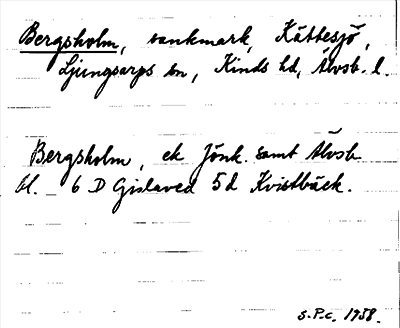 Bergsholm, sankmark, Kättesjö,
Ljungsarps sn, Kinds hd, Älvsb. l.
Bergsholm, ek Jönk. samt Älvsb.
bl. 6 D Gislaved 5d Kvistbäck.
S.P.c. 1958.